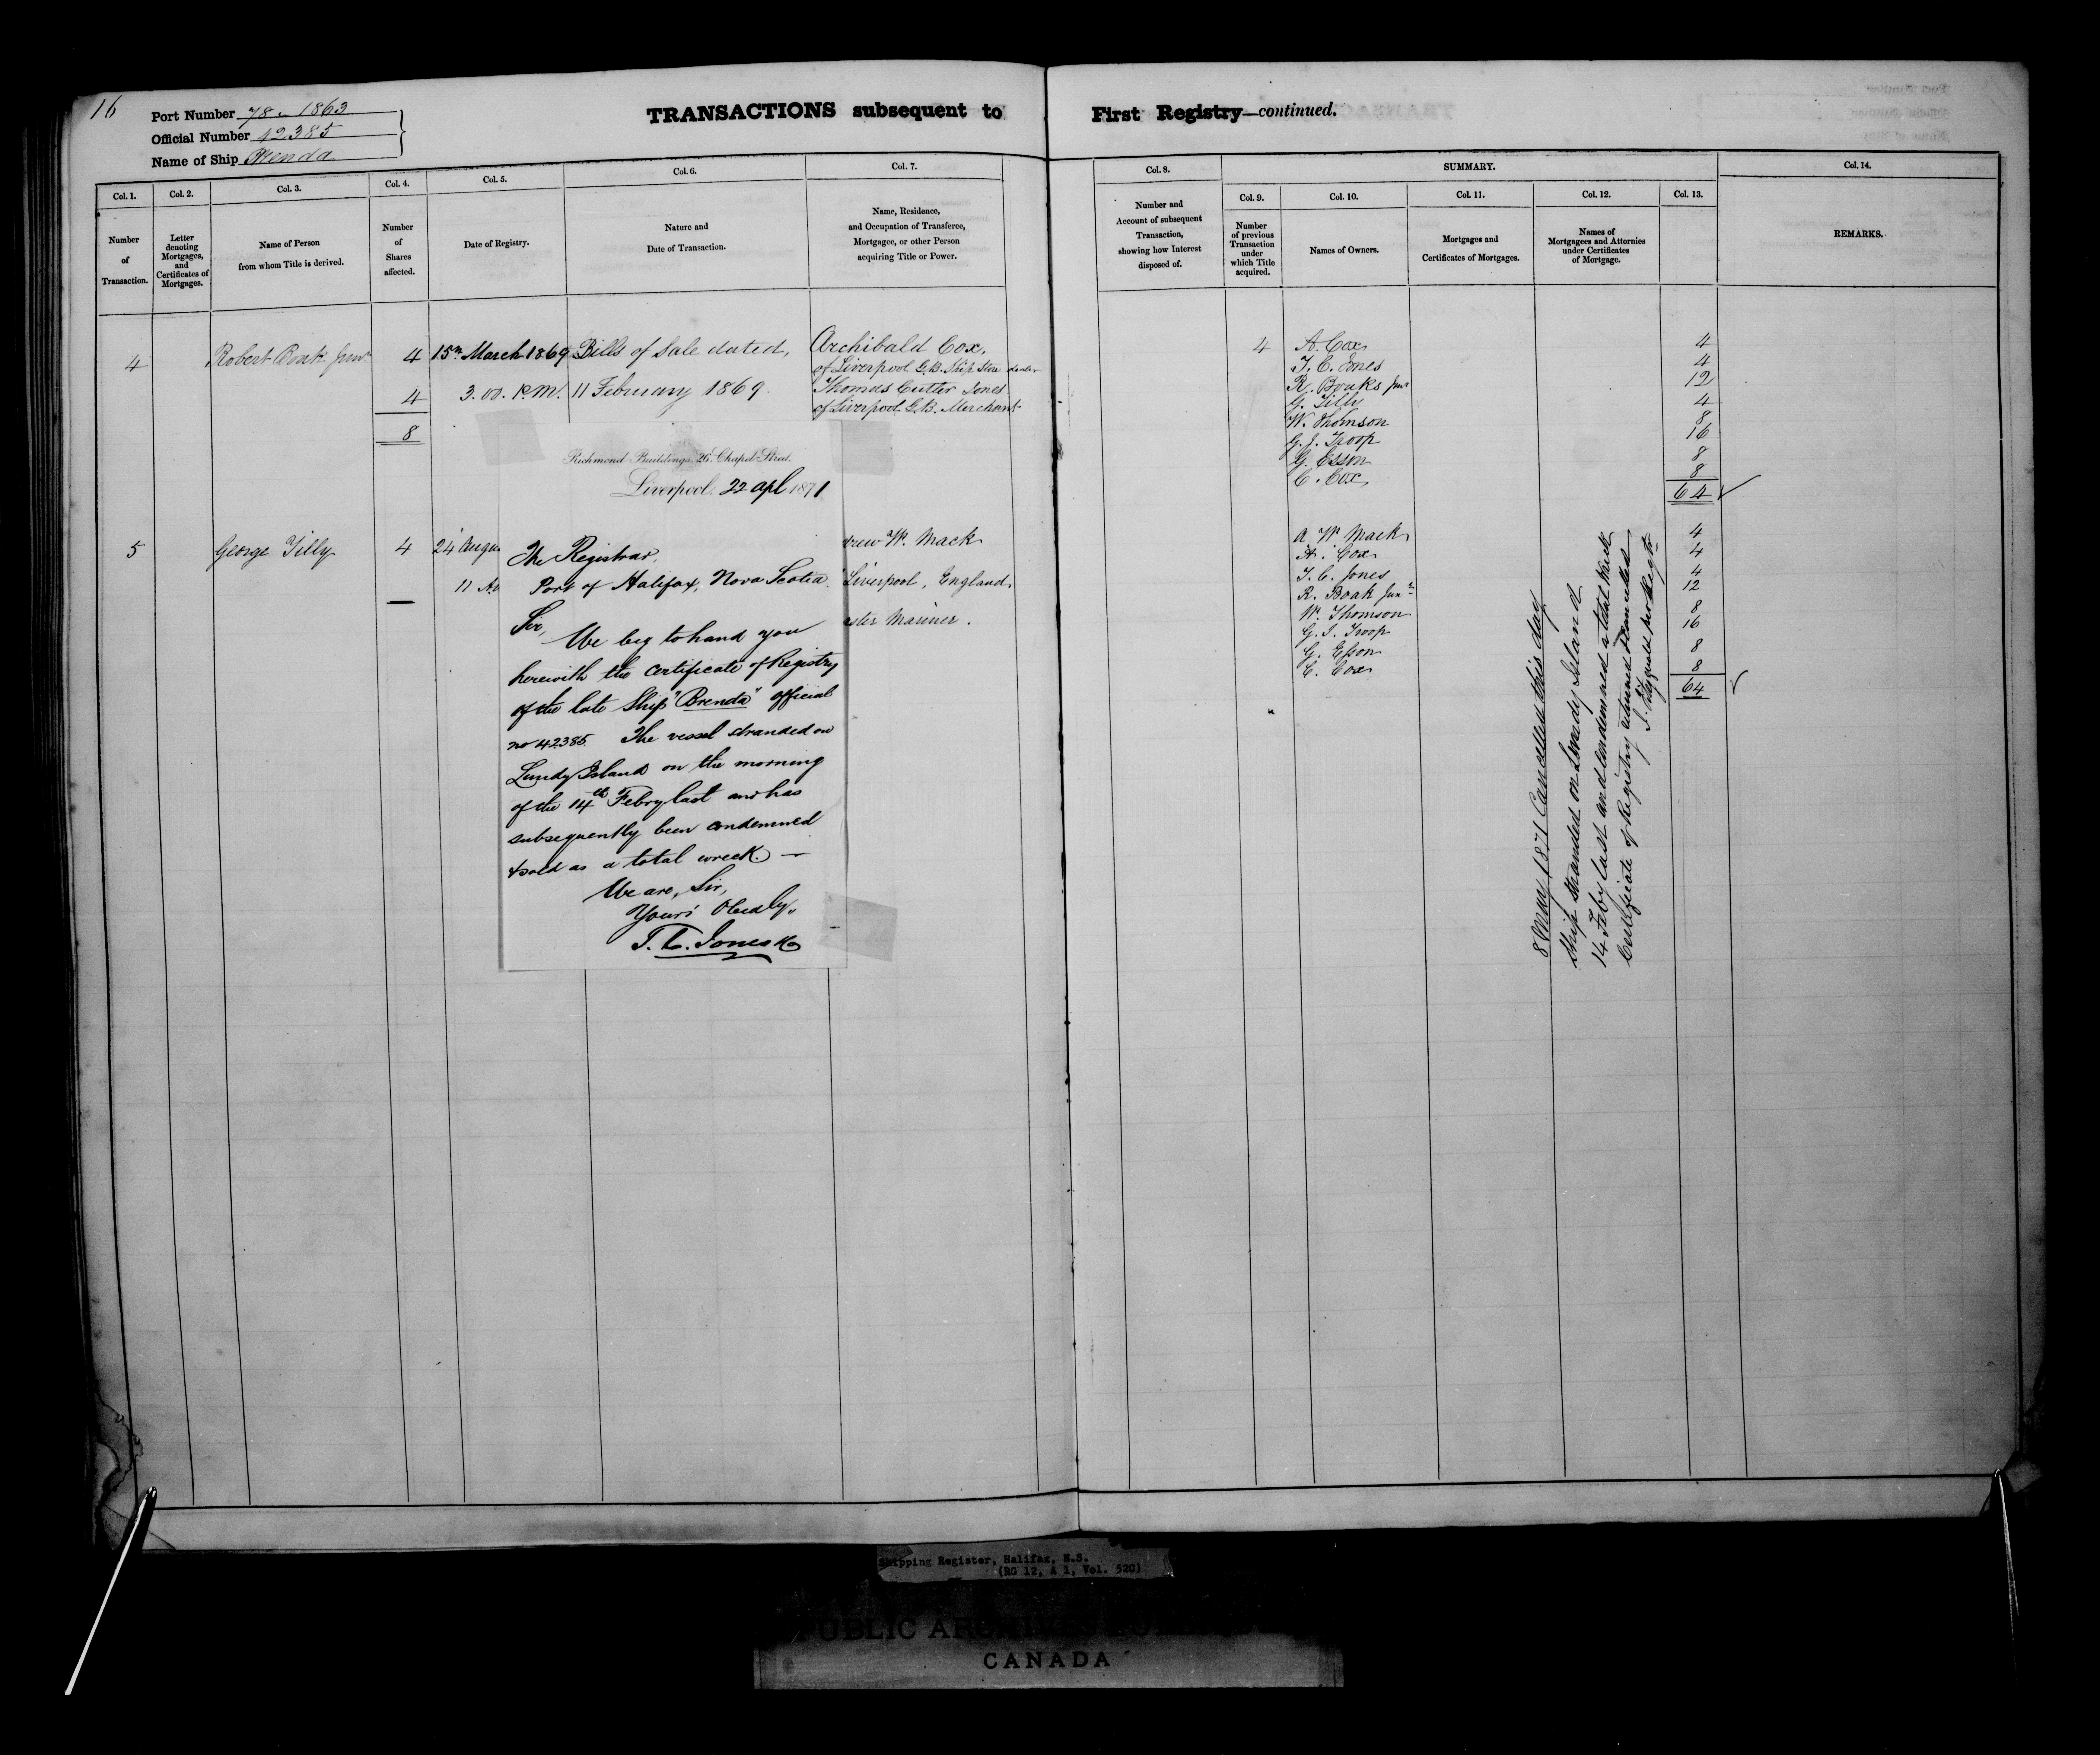 16
Port Number 78 - 1863
Official Number 42385
Name of Ship Brenda
TRANSACTIONS subsequent to
Col. 1. Col. 2. Col. 3. Col. 4. Col. 5. Col. 6. Col. 7.
Number of Transaction.
Letter denoting Mortgages, and Certificates of Mortgages.
Name of Person from whom Title is derived.
Number of Shares affected.
Date of Registry.
Nature and Date of Transaction.
Name, Residence, and Occupation of Transferee, Mortgagee, or other Person acquiring Title or Power.
4 Robert Boak Junr 4 15th March 1869 Bills of Sale dated, Archibald Cox,
of Liverpool G.B. Ship Store dealer
4 3.00. P.M. 11 February 1869. Thomas Cutler Jones
of Liverpool G.B. Merchant
8
5 George Tilly 4 24 Augu
11 A.
drew W. Mack
Liverpool, England,
aster Mariner.
Richmond Buildings, 26, Chapel Street.
Liverpool, 22 Apl 1871
The Registrar,
Port of Halifax, Nova Scotia
Sir,
We beg to hand you
herewith the Certificate of Registry
of the late Ship "Brenda" official
no 42385. The vessel stranded on
Lundy Island on the morning
of the 14th Febry last and has
subsequently been condemned
& sold as a total wreck. —
We are, Sir,
Yours Obedly,
T. C. Jones & Co
First Registry—continued.
Col. 8. SUMMARY. Col. 14.
Col. 9. Col. 10. Col. 11. Col. 12. Col. 13.
Number and Account of subsequent Transaction, showing how Interest disposed of.
Number of previous Transaction under which Title acquired.
Names of Owners.
Mortgages and Certificates of Mortgages.
Names of Mortgagees and Attornies under Certificates of Mortgage.
REMARKS.
4 A. Cox 4
T. C. Jones 4
R. Boaks Junr 12
G. Tilly 4
W. Thomson 8
G. J. Troop 16
G. Esson 8
C. Cox 8
64
A W Mack 4
A. Cox 4
T. C. Jones 4
R. Boak Junr 12
W. Thomson 8
G. J. Troop 16
G. Esson 8
C. Cox 8
64
8 May 1871 Cancelled this day
Ship stranded on Lundy Island
14 Feby last and condemned a total wreck
Certificate of Registry returned & cancelled
Shipping Register, Halifax, N.S.
(RG 12, A 1, Vol. 520)
PUBLIC ARCHIVES
CANADA